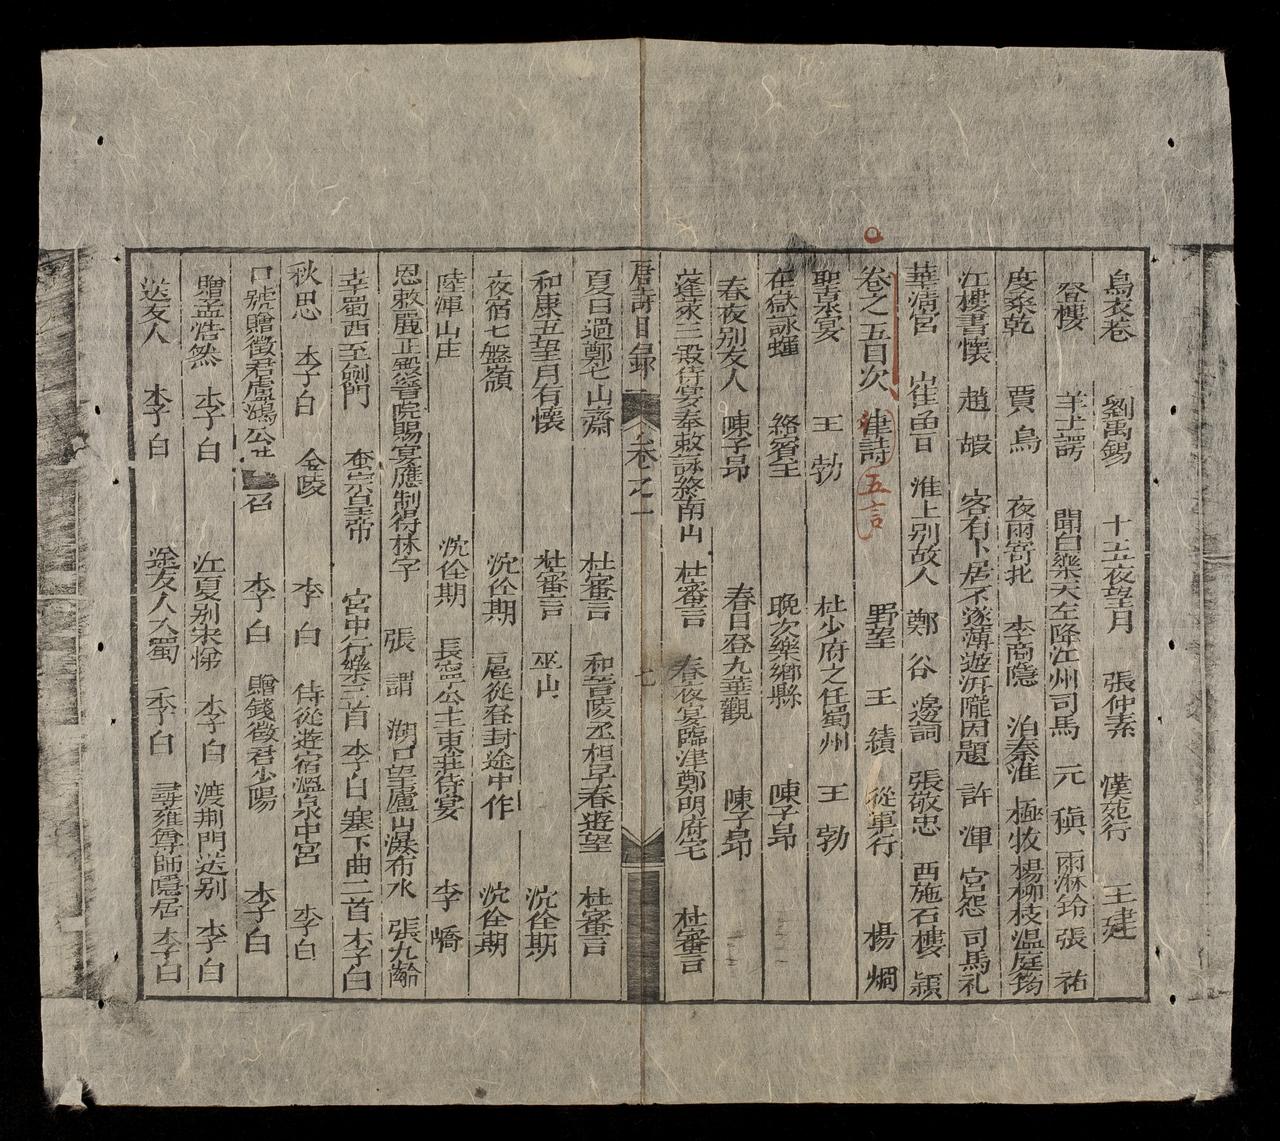 烏衣巷 劉禹錫 十五夜望月 張仲素 漢苑行 王建
登樓 羊士諤 聞白樂天左降江州司馬 元稹 雨淋鈴 張祐
度桑乾 賈島 夜雨寄北 李商隱 泊秦淮 極牧 楊柳枝 温庭筠
江樓書懷 趙嘏 客有卜居不遂薄遊汧隴因題 許渾 宮怨 司馬礼
華清宮 崔魯 淮上別故人 鄭谷 邊詞 張敬忠 西施石 樓潁
卷之五目次 律詩 五言 野望 王績 從軍行 楊烱
聖泉宴 王勃 杜少府之任蜀州 王勃
在獄詠蟬 駱賓王 晚次樂鄉縣 陳子昂
春夜別友人 陳子昂 春日登九華觀 陳子昂
蓬萊三殿侍宴奉敕詠終南山 杜審言 春夜宴臨津鄭明府宅 杜審言
唐詩目錄 卷之一 七
夏日過鄭七山齋 杜審言 和晉陵丞相早春遊望 杜審言
和康五望月有懷 杜審言 巫山 沈佺期
夜宿七盤嶺 沈佺期 扈從登封途中作 沈佺期
陸渾山庄 沈佺期 長寧公主東莊侍宴 李嶠
恩敕麗正殿書院賜宴應制得林字 張謂 湖口望廬山瀑布水 張九齡
幸蜀西至劍門 玄宗皇帝 宮中行樂三首 李白 塞下曲二首 李白
秋思 李白 金陵 李白 侍從遊宿溫泉中宮 李白
口號贈徵君盧鴻公 召 李白 贈錢徵君少陽 李白
贈孟浩然 李白 江夏別宋悌 李白 渡荆門送別 李白
送友人 李白 送友人入蜀 李白 尋雍尊師隱居 李白